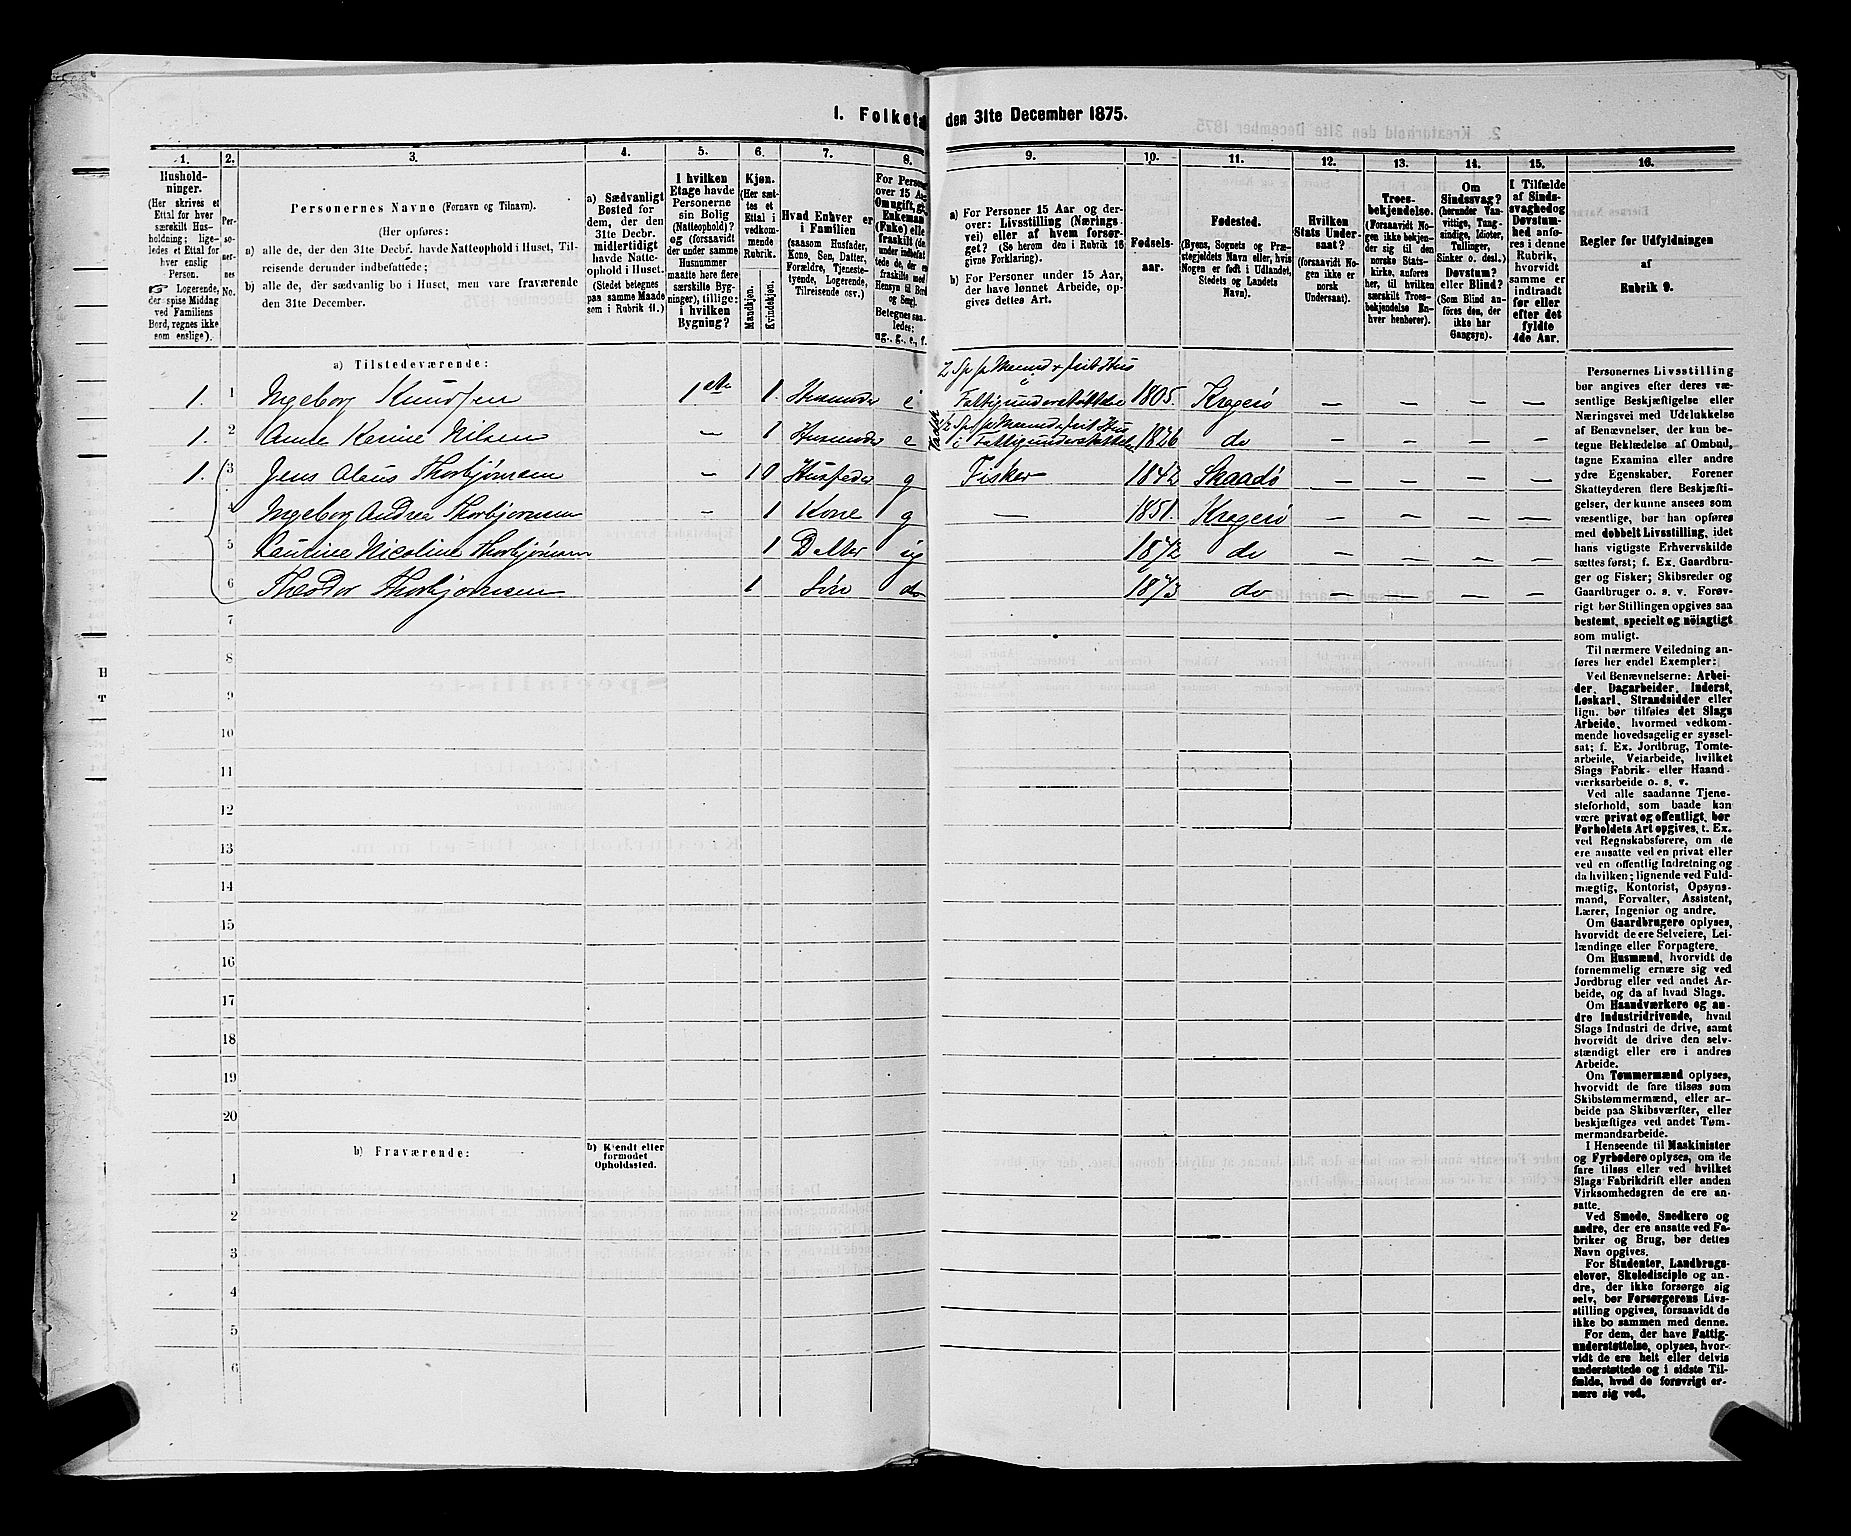 1. Folketæ den 31te December 1875.
1. 2. 3. 4. 5. 6. 7. 8. 9. 10. 11. 12. 13. 14. 15. 16.
Hushold-
ninger.
(Her skrives et
Ettal for hver
særskilt Hus-
holdning; lige-
ledes et Ettal for
hver enslig
Person.
☞ Logerende,
der spise Middag
ved Familiens
Bord, regnes ikke
som enslige).
Per-
so-
ner-
nes
No.
Personernes Navne (Fornavn og Tilnavn).
(Her opføres:
a) alle de, der den 31te Decbr. havde Natteophold i Huset, Til-
reisende derunder indbefattede;
b) alle de, der sædvanlig bo i Huset, men vare fraværende
den 31te December.
a) Sædvanligt
Bosted for
dem, der den
31te Decbr.
midlertidigt
havde Natte-
ophold i Huset.
(Stedet betegnes
paa samme Maade
som i Rubrik 11.)
I hvilken
Etage havde
Personerne
sin Bolig
(Natteophold)?
og (forsaavidt
der under samme
Husnummer
maatte høre flere
særskilte Byg-
ninger), tillige:
i hvilken
Bygning?
Kjøn.
(Her sæt-
tes et
Ettal i
vedkom-
mende
Rubrik.
Mandkjøn.
Kvindekjøn.
Hvad Enhver er
i Familien
(saasom Husfader,
Kone, Søn, Datter,
Forældre, Tjeneste-
tyende, Logerende,
Tilreisende osv.)
For Person
over 15 Aar
Om ugift, gi
Enkeman
(Enke) elle
fraskilt (de
under indbefat
tede de, der e
fraskilte med
Hensyn til Bord
og Seng).
Betegnes saa-
ledes:
ug., g., e., f.
a) For Personer 15 Aar og der-
over: Livsstilling (Nærings-
vei) eller af hvem forsør-
get? (Se herom den i Rubrik 16
givne Forklaring).
b) For Personer under 15 Aar,
der have lønnet Arbeide, op-
gives dettes Art.
Fødsels-
aar.
Fødested.
(Byens, Sognets og Præ-
stegjeldets Navn eller, hvis
Nogen er født i Udlandet,
Stedets og Landets
Navn).
Hvilken
Stats Under-
saat?
(forsaavidt No-
gen ikke er
norsk
Undersaat).
Troes-
bekjendelse.
(Forsaavidt No-
gen ikke bekjen-
der sig til den
norske Stats-
kirke, anføres
her, til hvilken
særskilt Troes-
bekjendelse En-
hver henhører).
Om
Sindssvag?
(herunder Van-
vittige, Tung-
sindige, Idioter,
Tullinger,
Sinker o. desl.)
Døvstum?
eller Blind?
(Som Blind an-
føres den, der
ikke har
Gangsyn).
I Tilfælde
af Sinds-
svaghed og
Døvstum-
hed anfø-
res i denne
Rubrik,
hvorvidt
samme er
indtraadt
før eller
efter det
fyldte
4de Aar.
Regler for Udfyldningen
af
Rubrik 9.
a) Tilstedeværende:
1. 1 Ingeborg Knudsen 1ste 1. Husmoder e Fattigunderstøttelse 1805. Kragerö — — — —
1. 2 Ane Karine Nilsen — 1 Husmoder e Fattigunderstøttelse 1826 do — — — —
1. 3 Jens Olaus Thorbjørnsen — 1 0 Husfader g Fisker 1842 Skaadö — — — —
4 Ingeborg Andrea Thorbjørnsen 1 Kone g — 1851. Kragerö — — — —
5 Laurine Nicoline Thorbjørnsen 1 Datter ug 1872 do — — — —
6 Theodor Thorbjørnsen 1 Sön do 1873 do — — — —
7
8
9
10
11
12
13
14
15
16
17
18
19
20
b) Fraværende:
b) Kjendt eller
formodet
Opholdssted.
1
2
3
4
5
6
Personernes Livsstilling
bør angives efter deres væ-
sentlige Beskjæftigelse eller
Næringsvei med Udelukkelse
af Benævnelser, der kun be-
tegne Beklædelse af Ombud,
tagne Examina eller andre
ydre Egenskaber. Forener
Skatteyderen flere Beskjæfti-
gelser, der kunne ansees som
væsentlige, bør han opføres
med dobbelt Livsstilling, idet
hans vigtigste Erhvervskilde
sættes først; f. Ex. Gaardbru-
ger og Fisker; Skibsreder og
Gaardbruger o. s. v. Forøv-
rigt bør Stillingen opgives saa
bestemt, specielt og nøiagtigt
som muligt.
Til nærmere Veiledning an-
føres her endel Exempler:
Ved Benævnelserne: Arbei-
der, Dagarbeider, Inderst,
Løskarl, Strandsidder eller
lign. bør tilføies det Slags
Arbeide, hvormed vedkom-
mende hovedsagelig er syssel-
sat; f. Ex. Jordbrug, Tomte-
arbeide, Veiarbeide, hvilket
Slags Fabrik- eller Haand-
værksarbeide o. s. v.
Ved alle saadanne Tjene-
steforhold, som baade kan
være privat og offentligt, bør
Forholdets Art opgives, t. Ex.
ved Regnskabsførere, om de
ere ansatte ved en privat eller
ved en offentlig Indretning og
da hvilken; lignende ved Fuld-
mægtig, Kontorist, Opsyns-
mand, Forvalter, Assistent,
Lærer, Ingeniør og andre.
Om Gaardbrugere oplyses,
hvorvidt de ere Selveiere, Lei-
lændinge eller Forpagtere.
Om Husmænd, hvorvidt de
fornemmelig ernære sig ved
Jordbrug eller ved andet Ar-
beide, og da af hvad Slags.
Om Haandværkere og an-
dre Industridrivende, hvad
Slags Industri de drive, samt
hvorvidt de drive den selv-
stændigt eller ere i andres
Arbeide.
Om Tømmermænd oplyses,
hvorvidt de fare tilsøs som
Skibstømmermænd, eller ar-
beide paa Skibsværfter, eller
beskjæftiges ved andet Tøm-
mermandsarbeide.
I Henseende til Maskinister
og Fyrbødere oplyses, om de
fare tilsøs eller ved hvilket
Slags Fabrikdrift eller anden
Virksomhedsgren de ere an-
satte.
Ved Smede, Snedkere og
andre, der ere ansatte ved Fa-
briker og Brug, bør dettes
Navn opgives.
For Studenter, Landbrugs-
elever, Skoledisciple og an-
dre, der ikke forsørge sig
selv, bør Forsørgerens Livs-
stilling opgives, forsaavidt de
ikke bo sammen med denne.
For dem, der have Fattig-
understøttelse, oplyses, hvor-
vidt de ere helt eller delvis
understøttede og i sidste Til-
fælde, hvad de forøvrigt er-
nære sig ved.